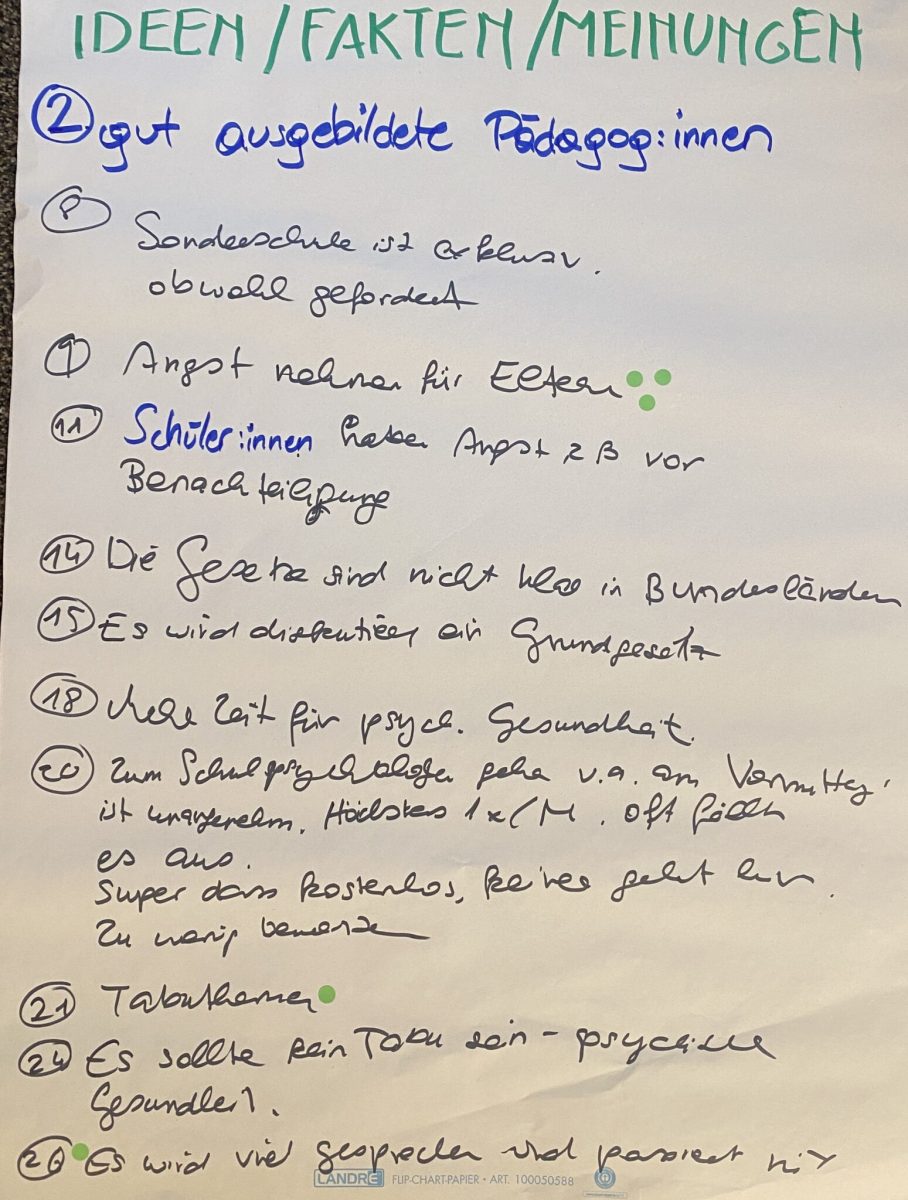 IDEEN / FAKTEN / MEINUNGEN
② gut ausgebildete Pädagog:innen
⑧ Sonderschule ist exklusiv.
obwohl gefordert
⑨ Angst nehmen für Eltern
⑪ Schüler:innen haben Angst z B vor
Benachteiligung
⑭ Die Gesetze sind nicht klar in Bundesländern
⑮ Es wird diskutiert ein Grundgesetz
⑱ Mehr Zeit für psych. Gesundheit.
⑳ Zum Schulpsychologen gehen v.a. am Vormittag,
ist unangenehm. Höchstens 1x/M. oft fällt
es aus.
Super dass kostenlos, keiner geht hin.
Zu wenig
㉑ Tabuthemen
㉔ Es sollte kein Tabu sein - psychische
Gesundheit.
㉖ Es wird viel gesprochen und passiert nix
LANDRÉ FLIP-CHART-PAPIER • ART. 100050588